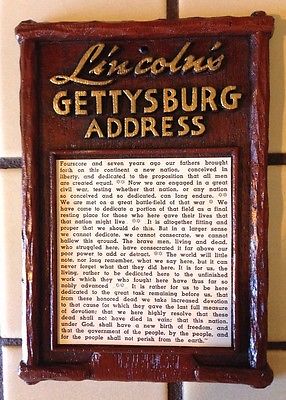 Lincoln's
GETTYSBURG
ADDRESS
Fourscore and seven years ago our fathers brought
forth on this continent a new nation, conceived in
liberty, and dedicated to the proposition that all men
are created equal. ☆☆ Now we are engaged in a great
civil war, testing whether that nation, or any nation
so conceived and so dedicated, can long endure. ☆☆
We are met on a great battle-field of that war ☆ We
have come to dedicate a portion of that field as a final
resting place for those who here gave their lives that
that nation might live ☆☆ It is altogether fitting and
proper that we should do this. But in a larger sense
we cannot dedicate, we cannot consecrate, we cannot
hallow this ground. The brave men, living and dead,
who struggled here, have consecrated it far above our
poor power to add or detract. ☆☆ The world will little
note, nor long remember, what we say here, but it can
never forget what they did here. It is for us, the
living, rather to be dedicated here to the unfinished
work which they who fought here have thus far so
nobly advanced ☆☆ It is rather for us to be here
dedicated to the great task remaining before us, that
from these honored dead we take increased devotion
to that cause for which they gave the last full measure
of devotion; that we here highly resolve that these
dead shall not have died in vain; that this nation,
under God, shall have a new birth of freedom, and
that the government of the people, by the people, and
for the people shall not perish from the earth."